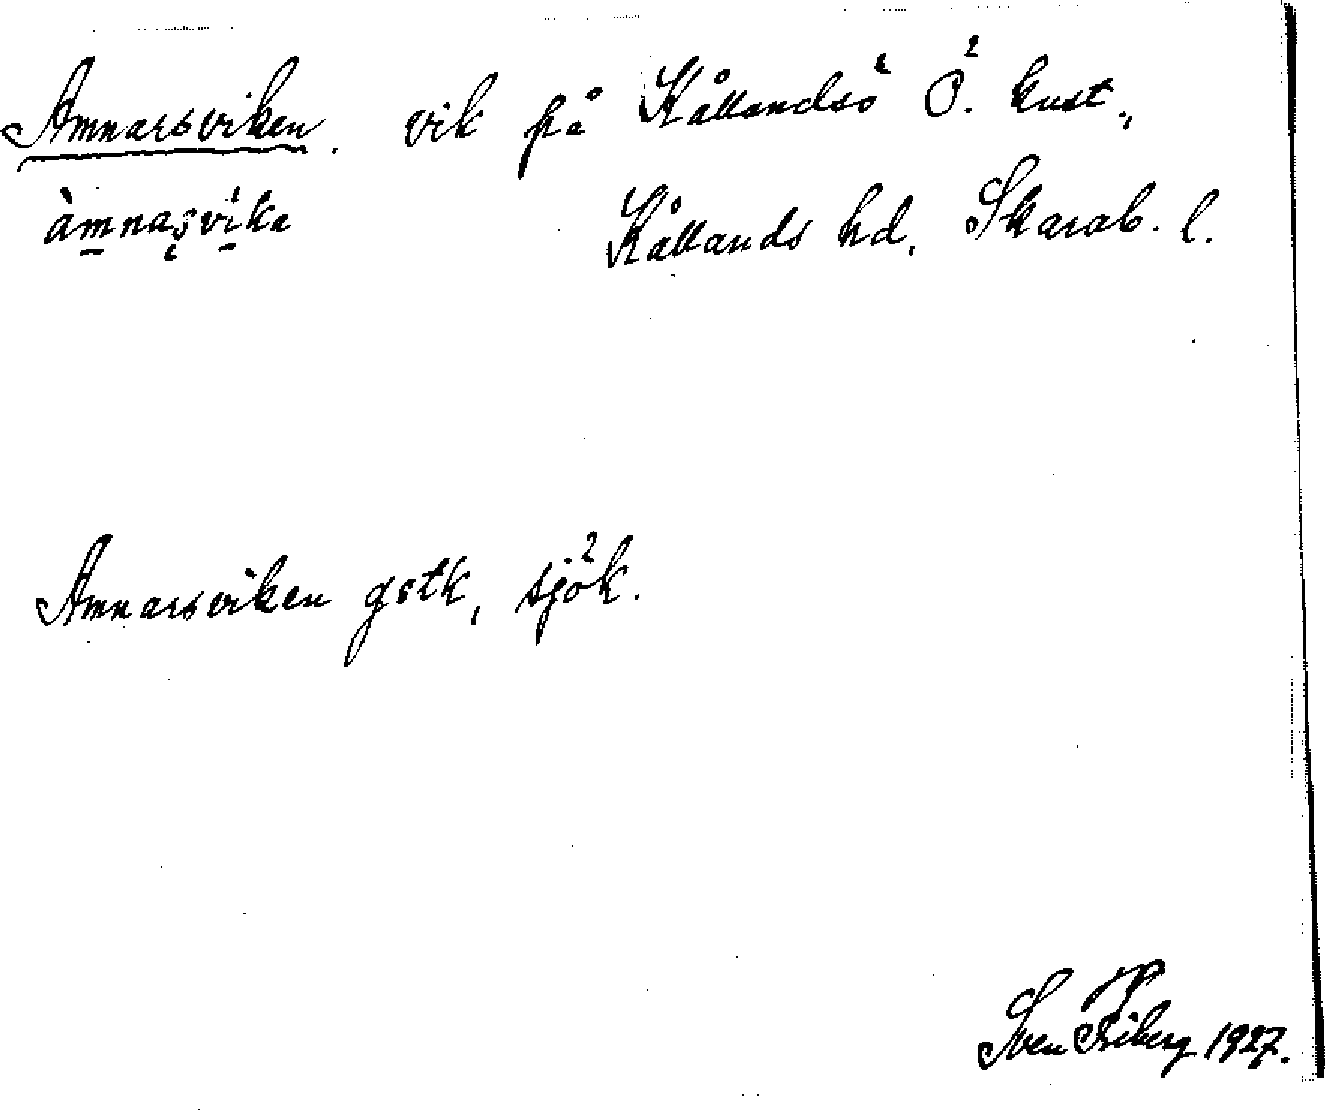 Amnarsviken. vik på Kållandsö Ö. kust,
àmnaşvìka Kållands hd, Skarab. l.
Amnarsviken gstk, sjök.
Sven 1927.